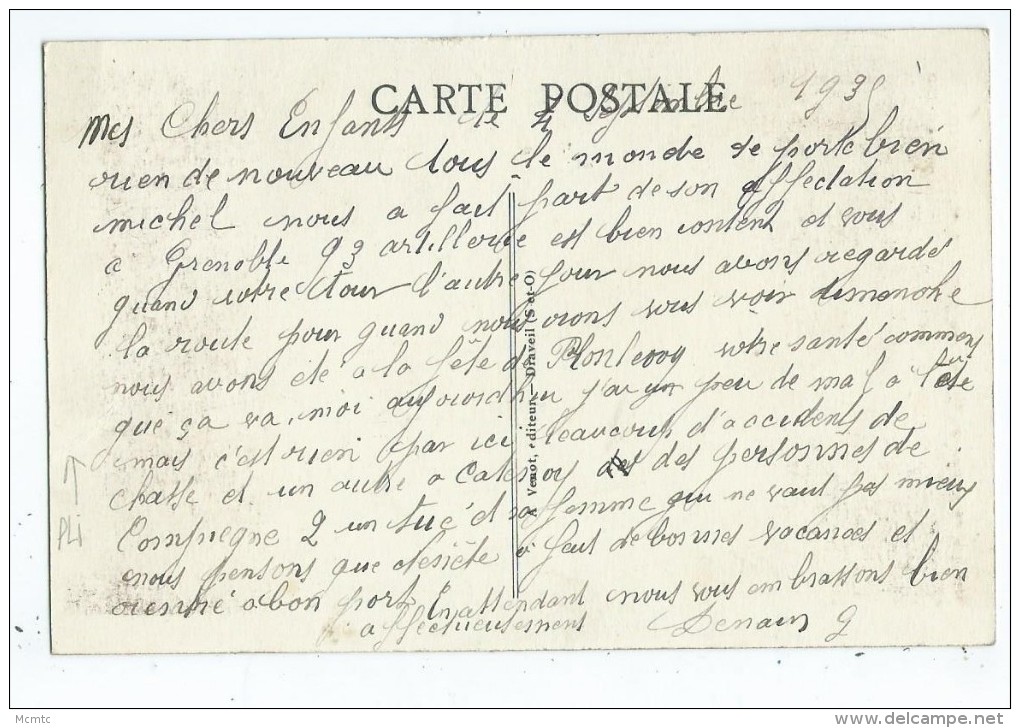 CARTE POSTALE
Mes Chers Enfants le 4 septembre 1935
rien de nouveau tous le monde se porte bien
michel nous a fait part de son affectation
a Grenoble 93 artillerie est bien content et vous
quand votre tour l'autre jour nous avons regardé
la route pour quand nous irons vous voir dimanche
nous avons été a la fête de votre santé comment
que ça va, moi aujourd'hui j'ai un peu de mal a tête
mais c'est rien par ici beaucoup d'accidents de
chasse et un autre a Catenoy des personnes de
Compiegne 2 un tué et sa femme qui ne vaut pas mieux
nous pensons que a fait de bonnes vacances et
a bon port En attendant nous vous embrassons bien
affectueusement Denain G
A. Venot, éditeur. — Draveil (S et O)
PLi
Mcmtc
delcampe.net